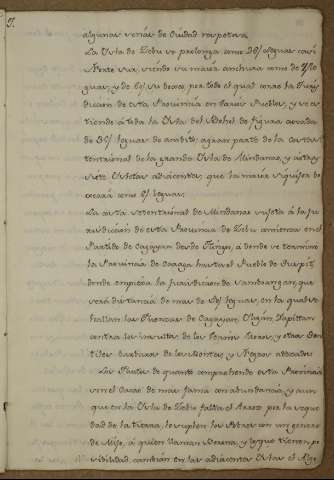 algunas venas de Ciudad respetiva.
La Ysla de Zebu se prolonga como 26 leguas casi
Norte sur, siendo su maior anchura como de
guas, y de 8 su decoro, por todo el qual corre la Juris
dicion de esta Provincia en varios Pueblos, y se ex
tiende á toda la Ysla del Bohol de figura ovada
de 36 leguas de ambito; agarra parte de la costa sep
tentrional de la grande Ysla de Mindanao, y otras
siete Yslotas adiacentes, que la maior
como 8 leguas.
La costa septentrional de Mindanao sujeta á la Ju
risdiccion de esta Provincia de Zebu comienza en el
Partido de Cagayan desde donde se termina
la Provincia de Caraga hasta el Pueblo de
donde empieza la Jurisdicion de Samboangan, que
será distancia de mas de leguas, en la qual se
hallan las Fuerzas de Cagayan, Yligan, Dapitan
contra los insultos de los Moros, y otros Gen
tiles barbaros de los Montes, y Negros
Los frutos de quanto comprehende esta Provincia
son el Cacao de mas fama con abundancia, y aun
que en la Ysla de Zebu falta el Arroz por la seque
dad de la tierra, lo suplen los Naturales con un genero
de Mijo, á quien llaman Borona, y lo que tienen po
sibilidad, tambien en las adiacentes Yslas el Algo